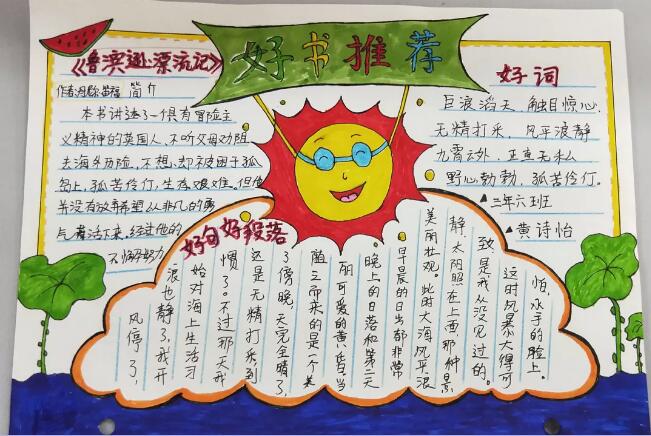 好书推荐
《鲁滨逊漂流记》
简介
本书讲述了一俱有冒险主
义精神的英国人,不听父母劝阻
去海外历险,不想,却被困于孤
岛上,孤苦伶仃,生存艰难。但他
并没有放弃希望从非凡的勇
气着活下来,经过他的
不懈努力
好词
巨浪滔天,触目惊心
无精打采,风平浪静
九霄云外,正直无私
野心勃勃,孤苦伶仃。
▲三年六班
▲黄诗怡
好句好段落
风停了,
浪也静了,我开
始对海上生活习
惯了。不过那天我
这是无精打采到
了傍晚,天完全晴了,
随之而来的是一个美
丽可爱的黄昏。当
晚上的日落和第二天
早晨的日出都非常
美丽壮观。此时大海风平浪
静,太阳照在上面,那种景
致,是我从没见过的。
这时风暴大得可
怕,水手的脸上。